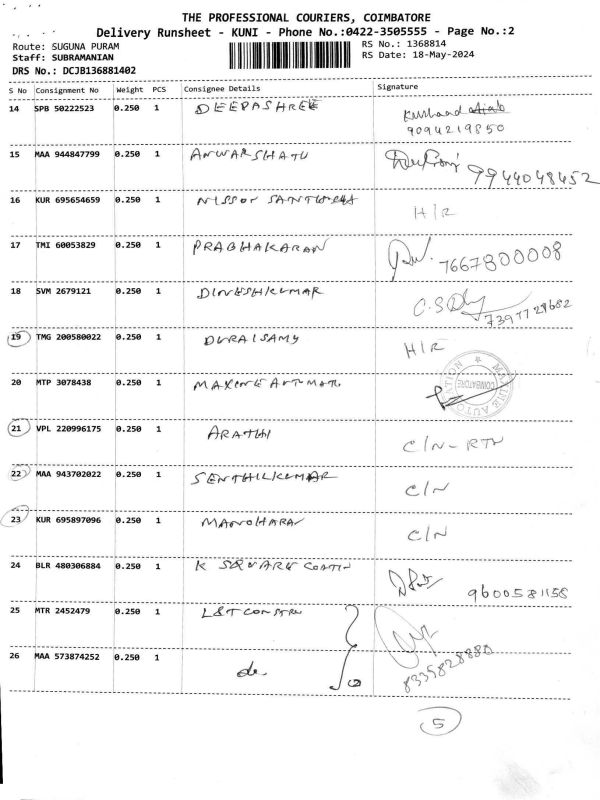 THE PROFESSIONAL COURIERS, COIMBATORE
Delivery Runsheet - KUNI - Phone No.:0422-3505555 - Page No.:2
Route: SUGUNA PURAM RS No.: 1368814
Staff: SUBRAMANIAN RS Date: 18-May-2024
DRS No.: DCJB136881402
S No Consignment No Weight PCS Consignee Details Signature
14 SPB 50222523 0.250 1 DEEPASHREE
9094219850
15 MAA 944847799 0.250 1 ANWARSHATU 9944048452
16 KUR 695654659 0.250 1 H/R
17 TMI 60053829 0.250 1 PRABHAKARAN 7667800008
18 SVM 2679121 0.250 1 DINESHKUMAR
7397728682
19 TMG 200580022 0.250 1 DURAISAMY H/R
20 MTP 3078438 0.250 1 COIMBATORE
21 VPL 220996175 0.250 1 ARATHI C/N-RTN
22 MAA 943702022 0.250 1 SENTHILKUMAR C/N
23 KUR 695897096 0.250 1 MANOHARAN C/N
24 BLR 480306884 0.250 1 K SQUARE COATIN 9600581158
25 MTR 2452479 0.250 1 L&T CONSTRU
26 MAA 573874252 0.250 1 do 8335828880
5